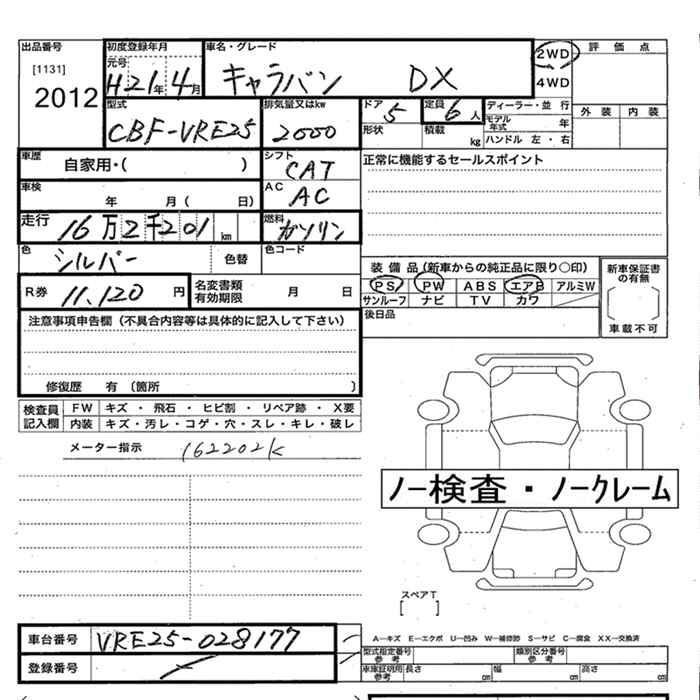 出品番号
[1131]
2012
初度登録年月
元号
H21年4月
車名・グレード
キャラバン DX
2WD
4WD
評価点
外装 内装
型式
CBF-VRE25
排気量又はkw
2000
ドア
5
定員
6人
形状
積載
kg
ディーラー・並行
モデル年式
年
ハンドル 左・右
車歴
自家用・( )
シフト
CAT
正常に機能するセールスポイント
車検
年 月( 日)
AC
AC
走行
16万2千201km
燃料
ガソリン
色
シルバー
色替
色コード
R券
11,120円
名変書類有効期限
月 日
装備品(新車からの純正品に限り○印)
PS PW ABS エアB アルミW
サンルーフ ナビ TV カワ
新車保証書の有無
車載不可
後日品
注意事項申告欄(不具合内容等は具体的に記入して下さい)
修復歴 有(箇所 )
検査員記入欄
FW キズ・飛石・ヒビ割・リペア跡・X要
内装 キズ・汚レ・コゲ・穴・スレ・キレ・破レ
メーター指示
162202K
ノー検査・ノークレーム
スペアT
[ ]
車台番号
VRE25-028177
登録番号
A―キズ E―エクボ U―凹み W―補修跡 S―サビ C―腐食 XX―交換済
型式指定番号
参考
類別区分番号
参考
車庫証明用
参考
長さ cm
幅 cm
高さ cm